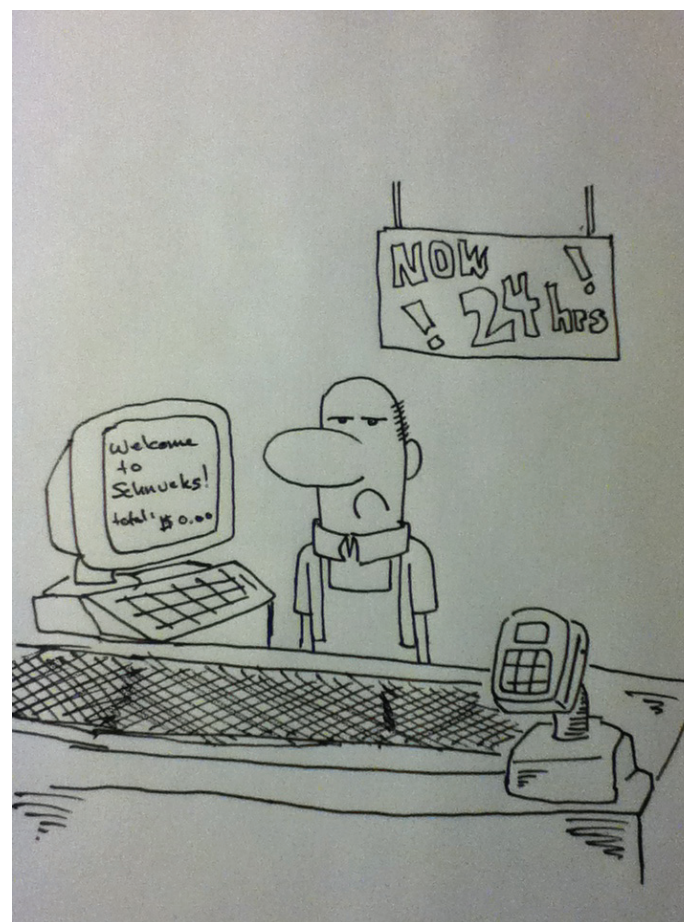 NOW !
! 24 hrs
Welcome
to
Schnucks!
total: $0.00